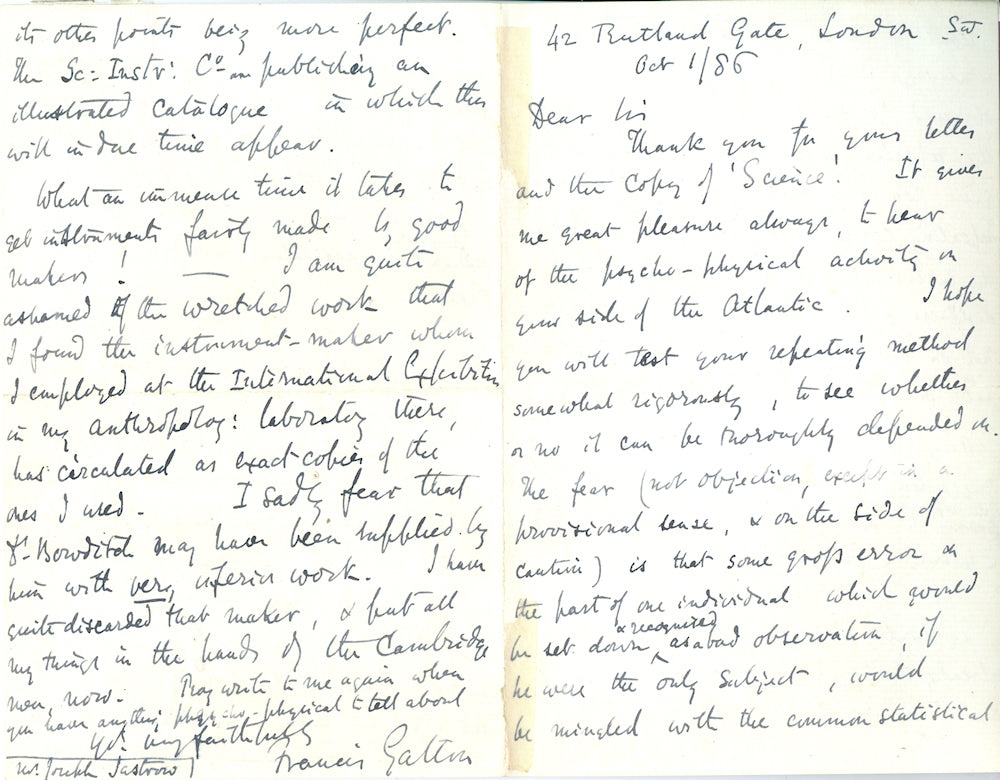 42 Rutland Gate, London SW.
Oct 1/86
Dear Sir
Thank you for your letter
and the copy of 'Science'. It gives
me great pleasure always, to hear
of the psycho-physical activity on
your side of the Atlantic. I hope
you will test your repeating method
somewhat rigorously, to see whether
or no it can be thoroughly depended on.
The fear (not objection, except in a
provisional sense, & on the side of
caution) is that some gross error on
the part of one individual which would
& recognised
be set down, as a bad observation, if
he were the only subject, would
be mingled with the common statistical
its other points being more perfect.
The Sc: Instr: Co are publishing an
illustrated catalogue in which this
will in due time appear.
What an immense time it takes to
get instruments fairly made by good
makers! — I am quite
ashamed of the wretched work that
I found the instrument-maker whom
I employed at the International Exhibition
in my anthropolog: laboratory there,
has circulated as exact copies of the
ones I used. I sadly fear that
Dr. Bowditch may have been supplied by
him with very inferior work. I have
quite discarded that maker, & put all
my things in the hands of the Cambridge
men, now. Pray write to me again when
you have anything psycho-physical to tell about
Yrs. very faithfully
Francis Galton
Mr. Joseph Jastrow